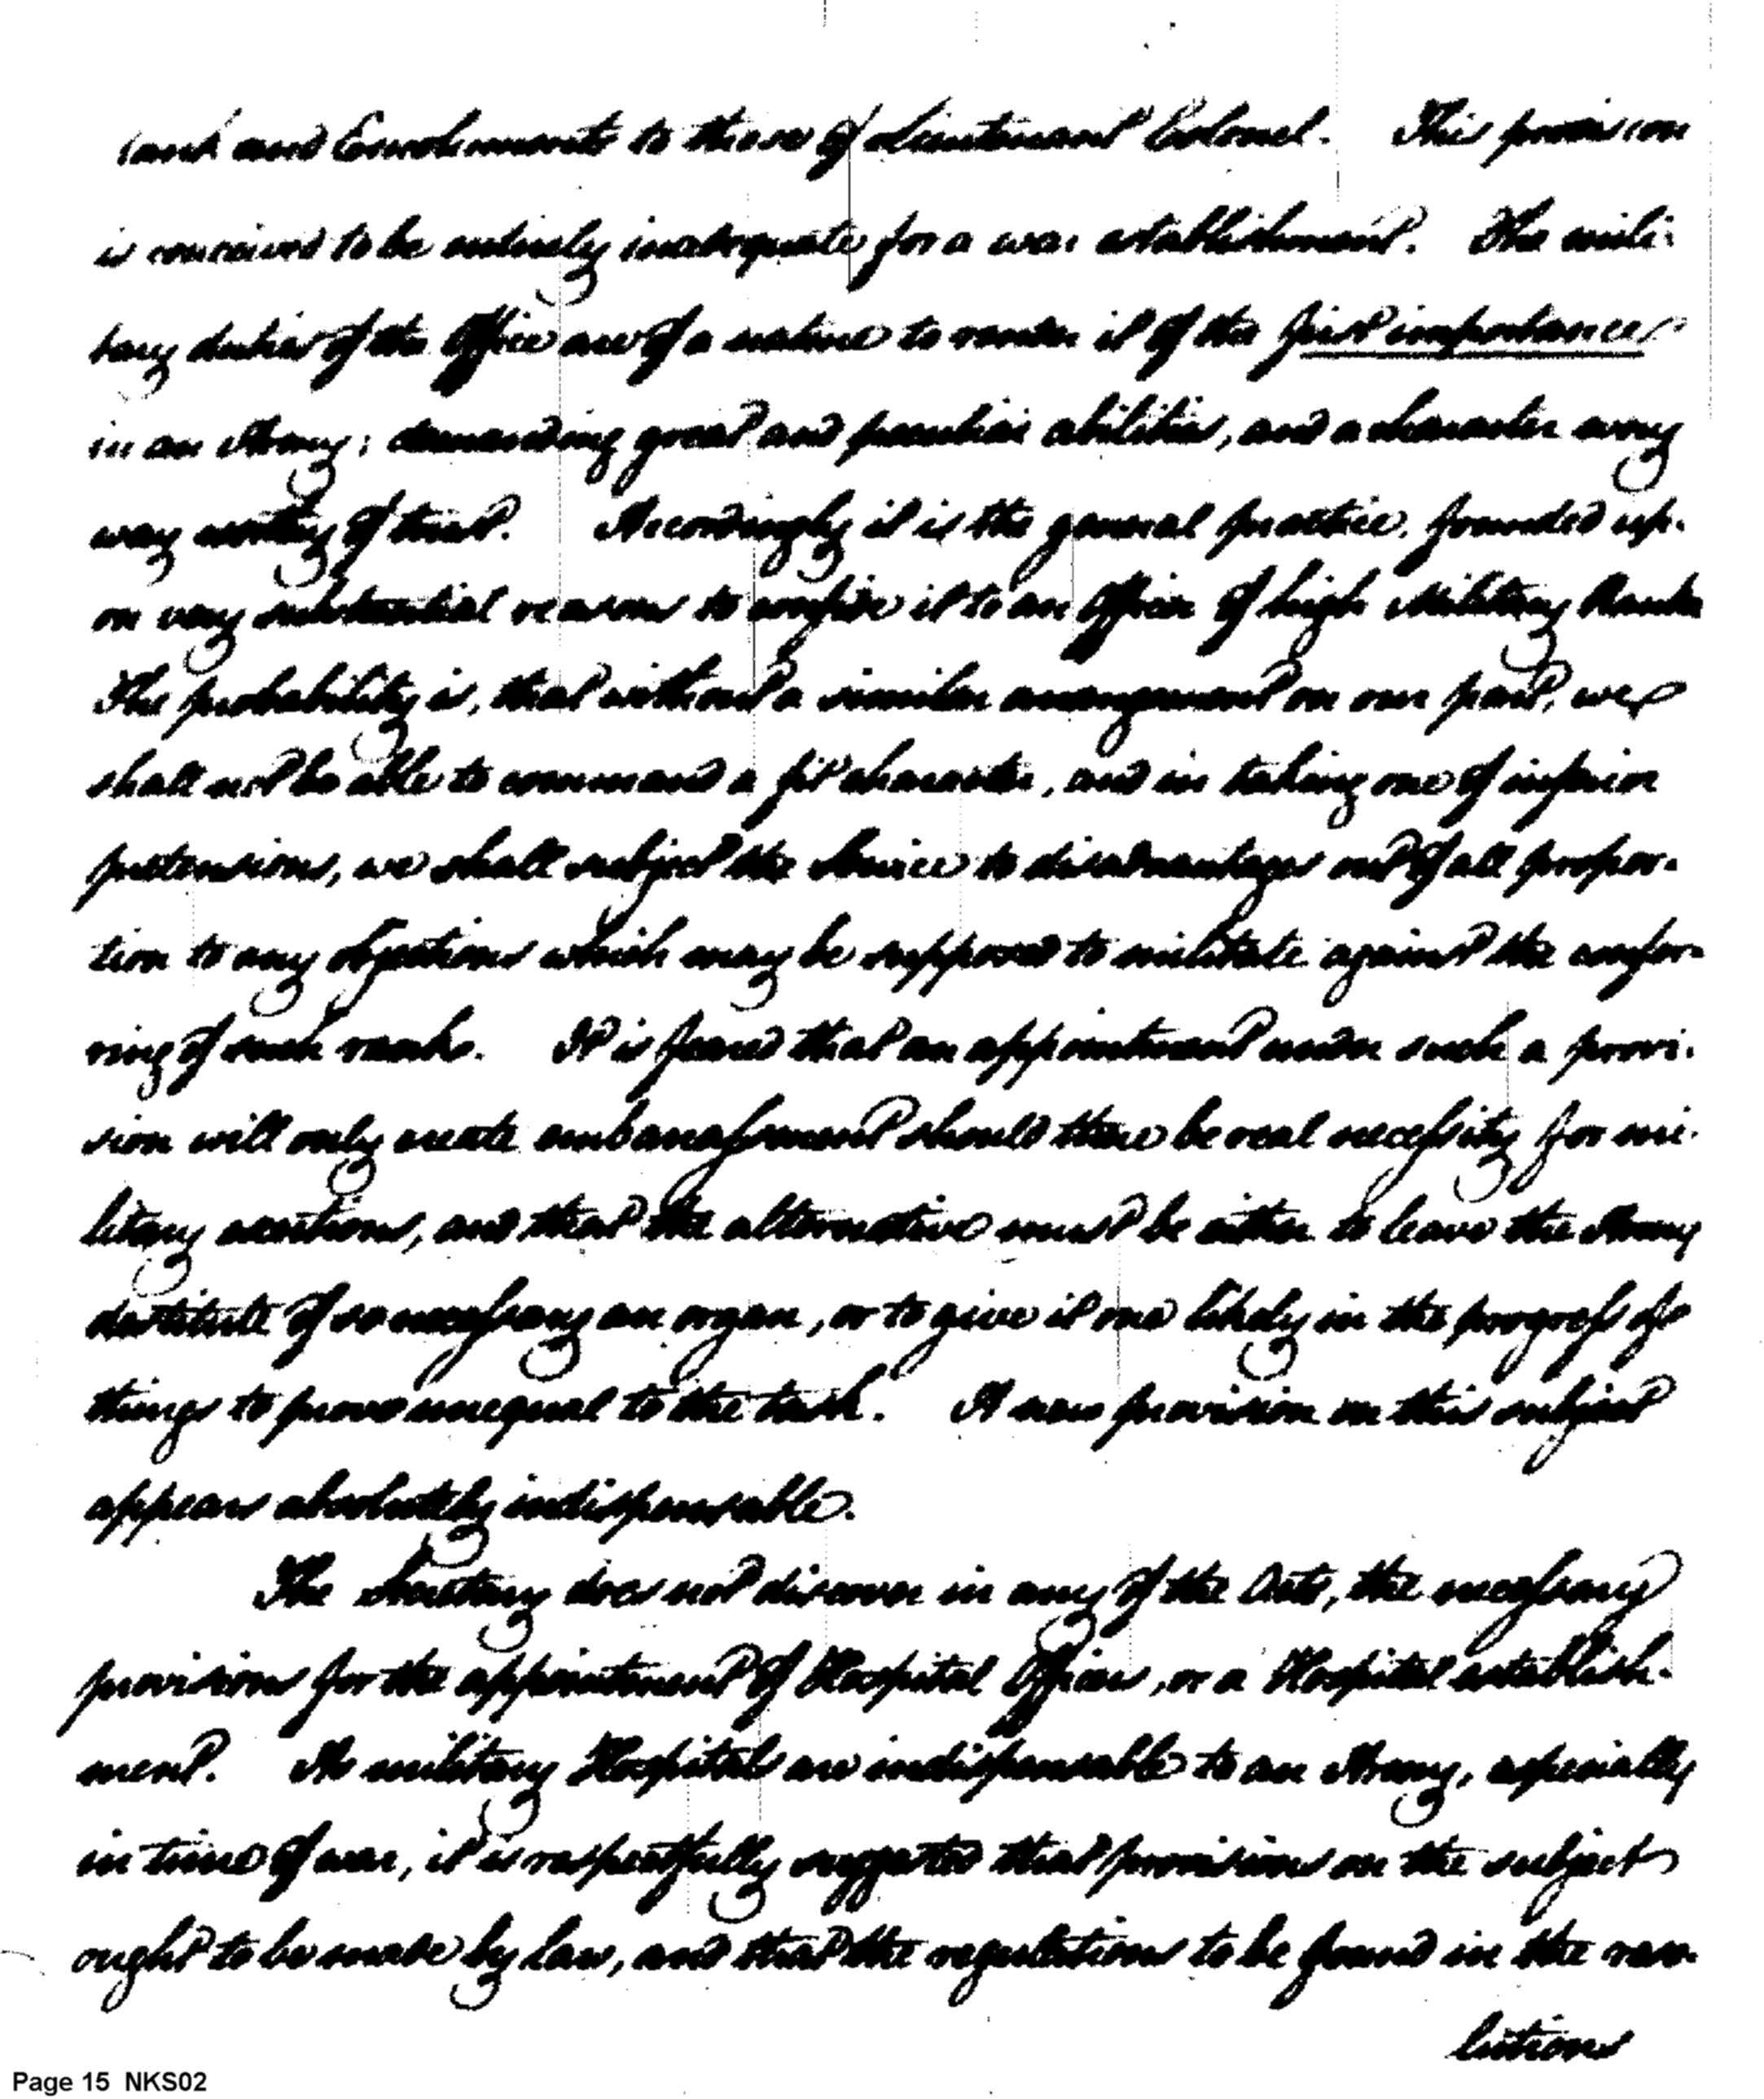 rank and Emoluments to those of Lieutenant Colonel. This provision
is conceived to be entirely inadequate for a war establishment. The mili-
tary duties of the Office are of a nature to render it of the first importance
in an Army; demanding great and peculiar abilities, and a character every
way worthy of trust. Accordingly it is the general practice, founded up-
on very substantial reasons to confide it to an Officer of high Military Rank.
The probability is, that without a similar arrangement on our part, we
shall not be able to command a fit character, and in taking one of inferior
pretensions, we shall subject the Service to disadvantages out of all propor-
tion to any objections which may be supposed to militate against the confer-
ring of such rank. It is feared that an appointment under such a provi-
sion will only create embarrassment should there be real necessity for mi-
litary exertions, and that the alternative must be either to leave the Army
destitute of so necessary an organ, or to give it one likely in the progress of
things to prove unequal to the task. A new provision on this subject
appears absolutely indispensable.
The Secretary does not discover in any of the Acts, the necessary
provisions for the appointment of Hospital Officers, or a Hospital establish-
ment. As military Hospitals are indispensable to an Army, especially
in time of war, it is respectfully suggested that provisions on the subject
ought to be made by law, and that the regulations to be found in the reso-
lutions
Page 15 NKS02